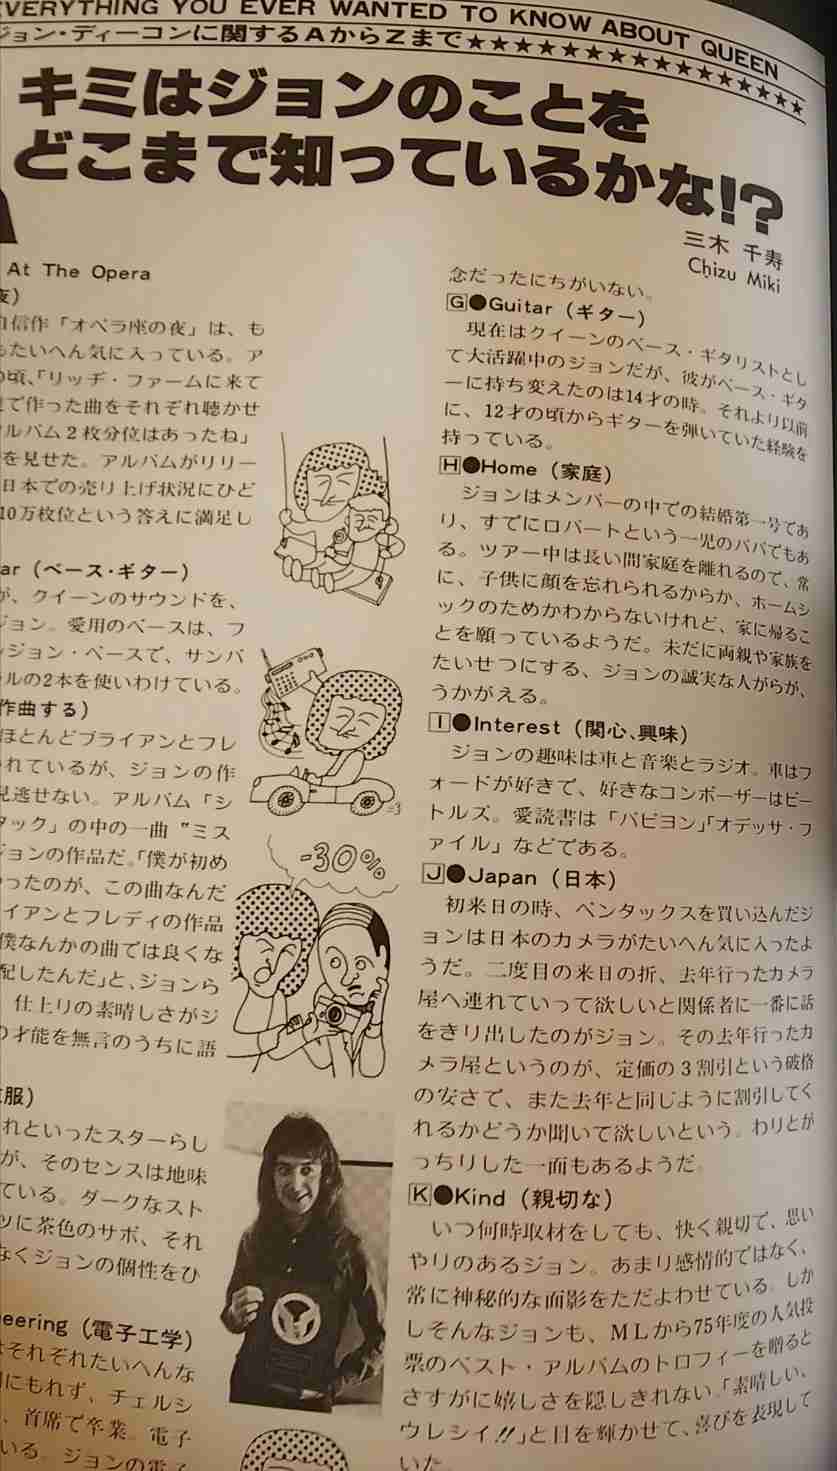 EVERYTHING YOU EVER WANTED TO KNOW ABOUT QUEEN
ジョン・ディーコンに関するAからZまで★★★★★★★★★★★★★★★★★
キミはジョンのことを
どこまで知っているかな!?
三木 千寿
Chizu Miki
At The Opera
夜）
自信作「オペラ座の夜」は、も
たいへん気に入っている。ア
の頃、「リッヂ・ファームに来て
で作った曲をそれぞれ聴かせ
アルバム2枚分位はあったね」
を見せた。アルバムがリリー
日本での売り上げ状況にひど
10万枚位という答えに満足し
ar（ベース・ギター）
が、クイーンのサウンドを、
ジョン。愛用のベースは、フ
レジョン・ベースで、サンバ
ラルの2本を使いわけている。
作曲する）
ほとんどブライアンとフレ
れているが、ジョンの作
見逃せない。アルバム「シ
タック」の中の一曲〝ミス
ジョンの作品だ。「僕が初め
ったのが、この曲なんだ
イアンとフレディの作品
僕なんかの曲では良くな
配したんだ」と、ジョンら
仕上りの素晴しさがジ
の才能を無言のうちに語
服）
れといったスターらし
が、そのセンスは地味
ている。ダークなスト
ツに茶色のサボ、それ
なくジョンの個性をひ
neering（電子工学）
それぞれたいへんな
にもれず、チェルシ
、首席で卒業。電子
いる。ジョンの電子
-30%
念だったにちがいない。
G●Guitar（ギター）
現在はクイーンのベース・ギタリストとし
て大活躍中のジョンだが、彼がベース・ギタ
ーに持ち変えたのは14才の時。それより以前
に、12才の頃からギターを弾いていた経験を
持っている。
H●Home（家庭）
ジョンはメンバーの中での結婚第一号であ
り、すでにロバートという一児のパパでもあ
る。ツアー中は長い間家庭を離れるので、常
に、子供に顔を忘れられるからか、ホームシ
ックのためかわからないけれど、家に帰るこ
とを願っているようだ。未だに両親や家族を
たいせつにする、ジョンの誠実な人がらが、
うかがえる。
I●Interest（関心、興味）
ジョンの趣味は車と音楽とラジオ。車はフ
ォードが好きで、好きなコンポーザーはビー
トルズ。愛読書は「パピヨン」「オデッサ・フ
ァイル」などである。
J●Japan（日本）
初来日の時、ペンタックスを買い込んだジ
ョンは日本のカメラがたいへん気に入ったよ
うだ。二度目の来日の折、去年行ったカメラ
屋へ連れていって欲しいと関係者に一番に話
をきり出したのがジョン。その去年行ったカ
メラ屋というのが、定価の3割引という破格
の安さで、また去年と同じように割引してく
れるかどうか聞いて欲しいという。わりとが
っちりした一面もあるようだ。
K●Kind（親切な）
いつ何時取材をしても、快く親切で、思い
やりのあるジョン。あまり感情的ではなく、
常に神秘的な面影をただよわせている。しか
しそんなジョンも、MLから75年度の人気投
票のベスト・アルバムのトロフィーを贈ると
さすがに嬉しさを隠しきれない。「素晴しい、
ウレシイ!!」と目を輝かせて、喜びを表現して
いた。